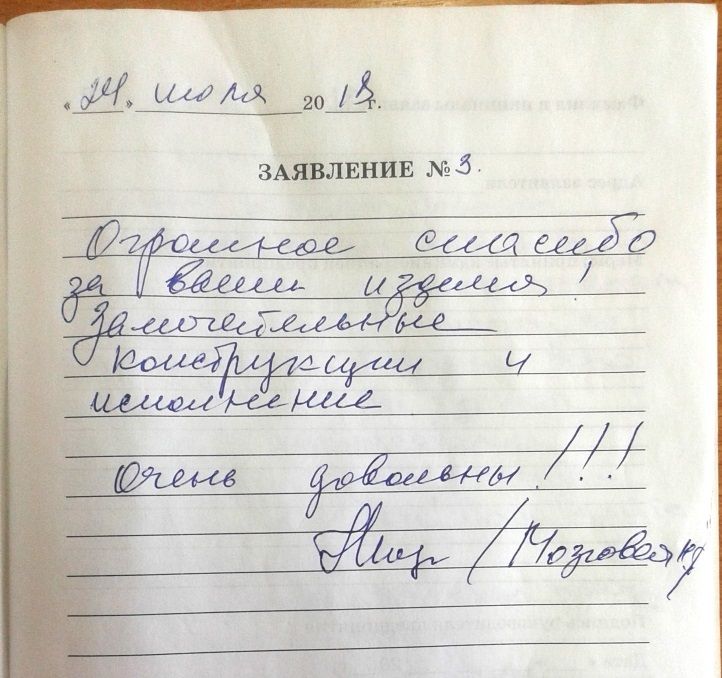 «24» июля 2018 г.
ЗАЯВЛЕНИЕ № 3.
Огромное спасибо
за ваши изделия!
Замечательные
конструкции и
исполнение
Очень довольны!!!